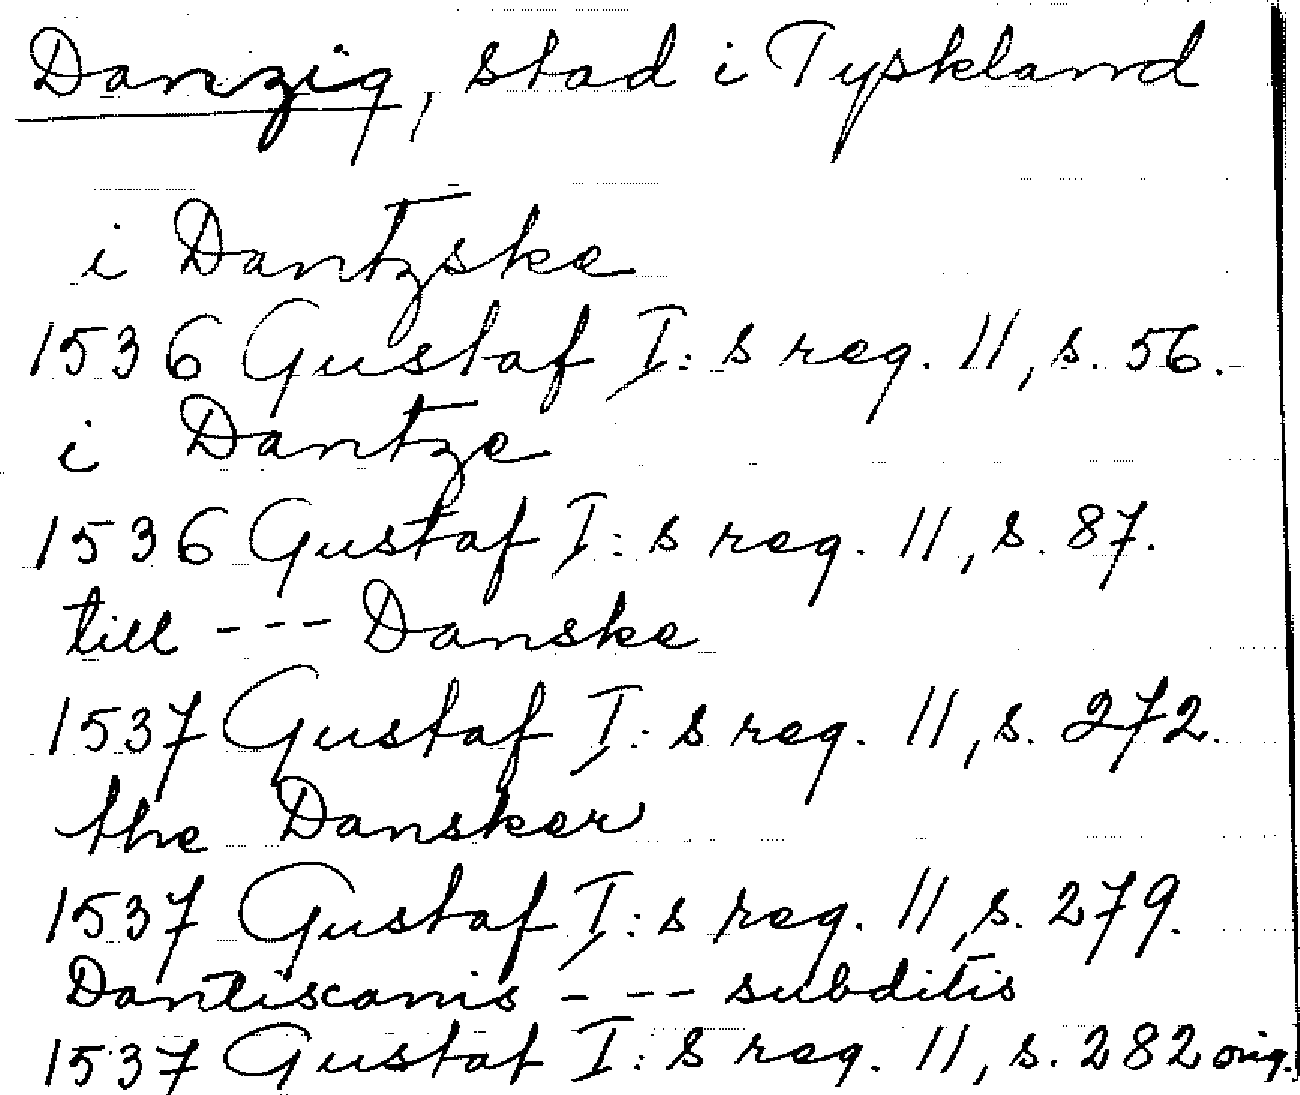 Danzig, stad i Tyskland
i Dantzske
1536 Gustaf I:s reg. 11, s. 56.
i Dantze
1536 Gustaf I:s reg. 11, s. 87.
till --- Danske
1537 Gustaf I:s reg. 11, s. 272.
the Dansker
1537 Gustaf I:s reg. 11, s. 279.
Dantiscanis - -- subditis
1537 Gustaf I:s reg. 11, s. 282 orig.